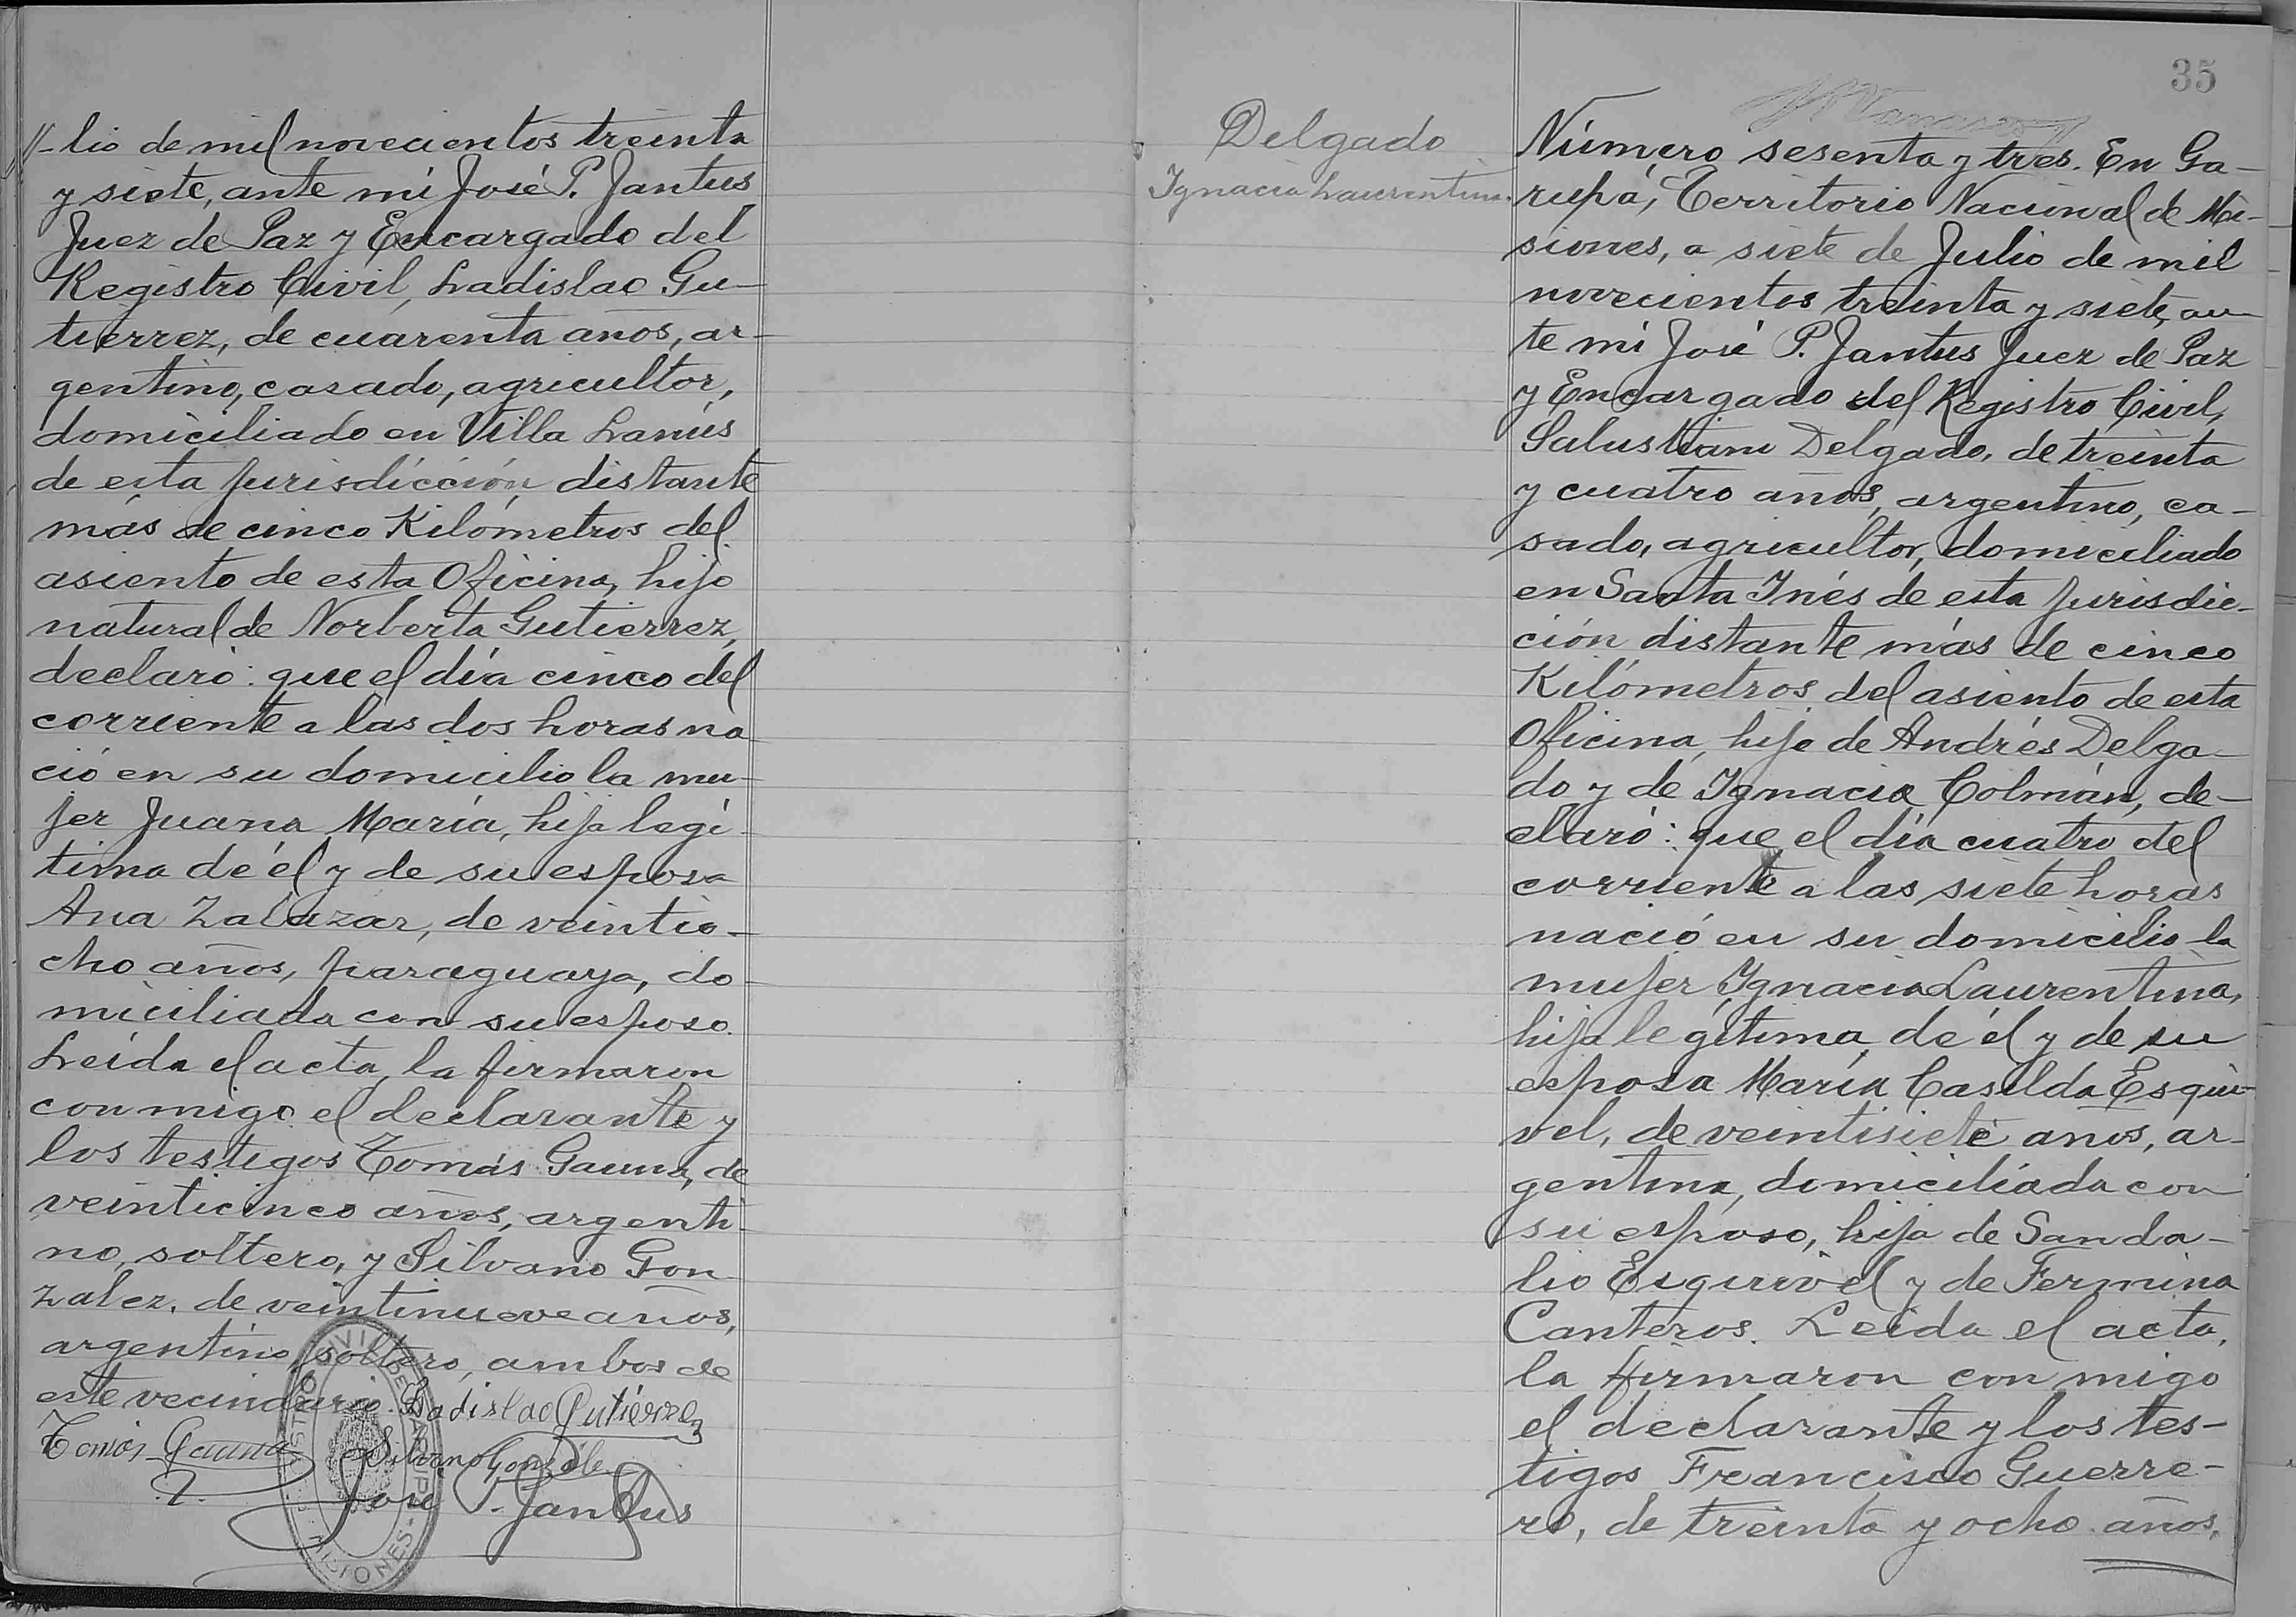 //-lio de mil novecientos treinta
y siete, ante mi José P. Jantus
Juez de Paz y Encargado del
Registro Civil, Ladislao Gu-
tierrez, de cuarenta años, ar-
gentino, casado, agricultor,
domiciliado en Villa Lanús
de esta jurisdicción distante
más de cinco Kilómetros del
asiento de esta Oficina, hijo
natural de Norberta Gutierrez,
declaró: que el día cinco del
corriente a las dos horas na
ció en su domicilio la mu-
jer Juana María, hija legí-
tima de él y de su esposa
Ana Zalazar, de veintio-
cho años, paraguaya, do-
miciliada con su esposo.
Leída el acta, la firmaron
conmigo el declarante y
los testigos Tomás Gauna, de
veinticinco años, argenti-
no, soltero, y Silvano Gon-
zalez, de veintinueve años,
argentino, soltero, ambos de
este vecindario. Ladislao Gutiérrez
Tomás Gauna Silvano González
José P. Jantus
35
Delgado
Ignacia Laurentina.
Número sesenta y tres. En Ga-
rupá, Territorio Nacional de Mi-
siones, a siete de Julio de mil
novecientos treinta y siete, an-
te mi José P. Jantus Juez de Paz
y Encargado del Registro Civil,
Salustiano Delgado, de treinta
y cuatro años, argentino, ca-
sado, agricultor, domiciliado
en Santa Inés de esta jurisdic-
ción distante más de cinco
Kilómetros del asiento de esta
Oficina, hijo de Andrés Delga-
do y de Ignacia Colmán, de-
claró: que el día cuatro del
corriente a las siete horas
nació en su domicilio la
mujer Ignacia Laurentina,
hija legítima de él y de su
esposa María Casilda Esqui-
vel, de veintisiete años, ar-
gentina, domiciliada con
su esposo, hija de Sanda-
lio Esquivel y de Fermina
Canteros. Leída el acta,
la firmaron conmigo
el declarante y los tes-
tigos Francisco Guerre-
ro, de treinta y ocho años,